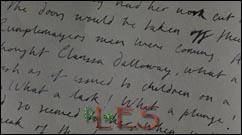 had her work cut
The doors would be taken off their
Rumplemayer's men were coming. A
thought Clarissa Dalloway, what a
as if issued to children on a
What a lark! What a plunge!
seemed
of the
LES